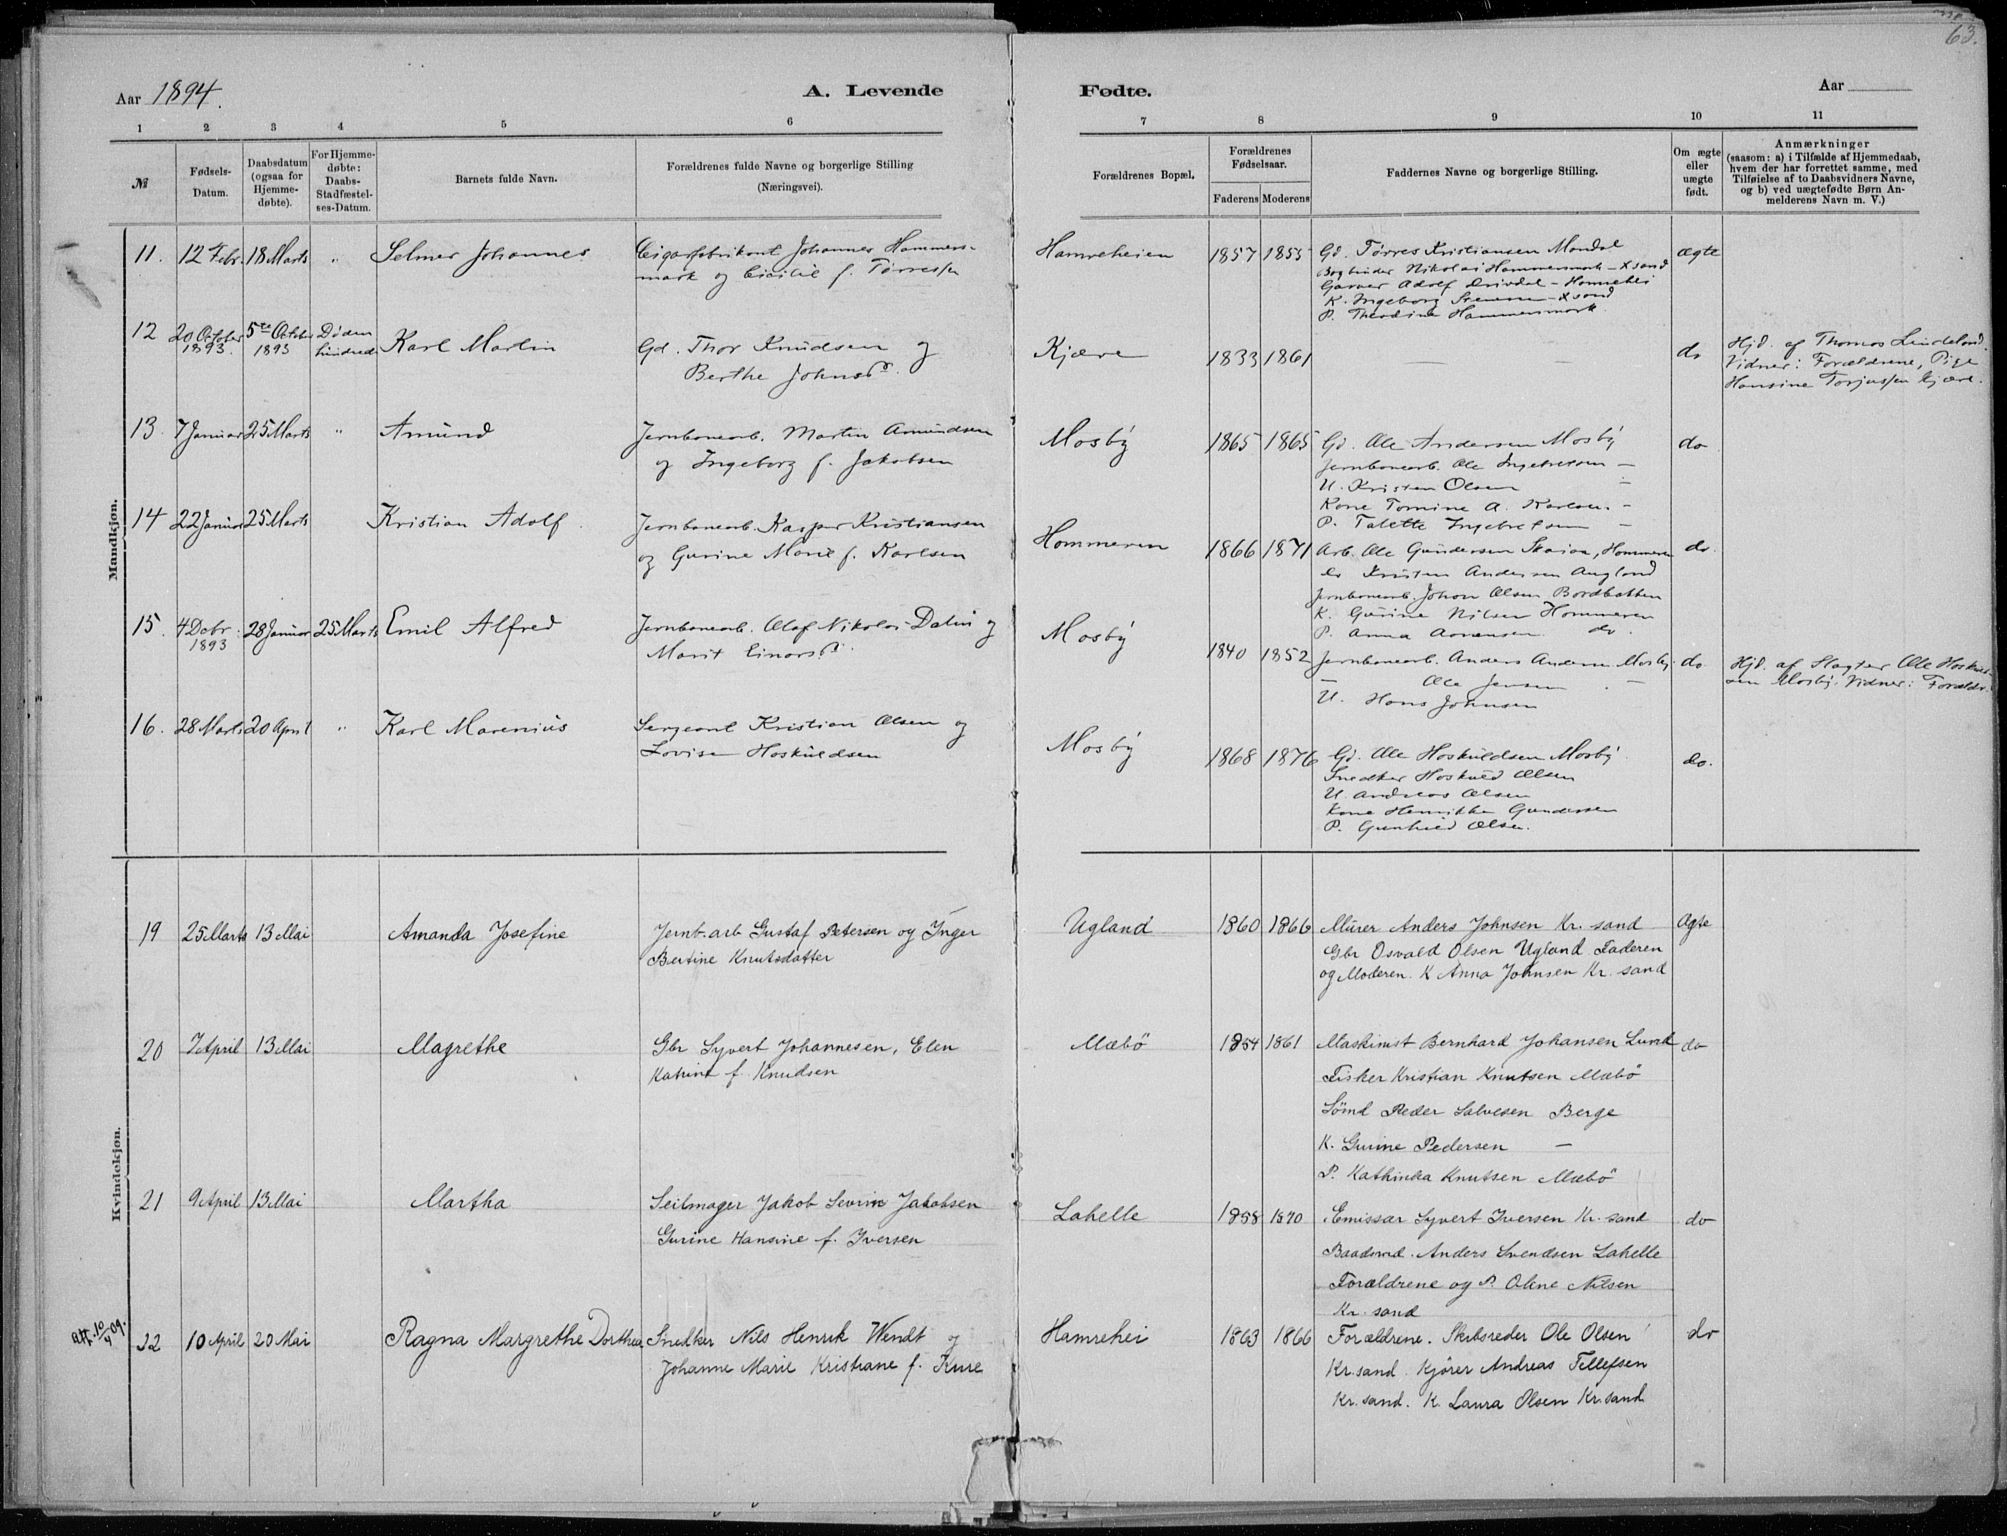 63.
Aar 1894.
A. Levende Fødte.
Aar
1 2 3 4 5 6 7 8 9 10 11
№
Fødsels-Datum.
Daabsdatum (ogsaa for Hjemme-døbte).
For Hjemme-døbte: Daabs-Stadfæstel-ses-Datum.
Barnets fulde Navn.
Forældrenes fulde Navne og borgerlige Stilling
(Næringsvei).
Forældrenes Bopæl.
Forældrenes Fødselsaar.
Faderens Moderens
Faddernes Navne og borgerlige Stilling.
Om ægte eller uægte født.
Anmærkninger
(saasom: a) i Tilfælde af Hjemmedaab,
hvem der har forrettet samme, med
Tilføielse af to Daabsvidners Navne,
og b) ved uægtefødte Børn An-
melderens Navn m. V.)
Mandkjøn.
11. 12 Febr. 18 Marts " Selmer Johannes
Cigarfabrikant Johannes Hammers-
mark og Cicilie f. Tørressen
Hamreheien 1857 1855
Gd. Tørres Kristiansen Mandal
Bogbinder Nikolai Hammersmark – Xsand
Garver Adolf Drivdal – Hamrehei
K. Ingeborg Svensen – Xsand
P. Theodine Hammersmark
ægte
12 20 October 1893. 5te October 1893 Døden hindred Karl Martin
Gd. Thor Knudsen og
Berthe Johnsd.
Kjære 1833 1861 — — do
Hjd. af Thomas Lindeland.
Vidner: Forældrene, Pige
Hansine Torjussen Kjære.
13. 7 Januar 25 Marts " Amund
Jernbanearb. Martin Amundsen
og Ingeborg f. Jakobsen
Mosby 1865 1865
Gd. Ole Andersen Mosby
Jernbanearb. Ole Ingebretsen –
U. Kristen Olsen –
Kone Tomine A. Karlsen. –
P. Talette Ingebretsen –
do
14 22 Januar 25 Marts Kristian Adolf.
Jernbanearb. Kasper Kristiansen
og Gurine Marie f. Karlsen
Hommeren 1866 1871
Arb. Ole Gundersen Skaiaa, Hommeren
do Kristen Andersen Augland
Jernbanearb. Johan Olsen Bordbakken
K. Gurine Nilsen Hommeren
P. Anna Aanensen do.
do.
15. 4 Debr. 1893 28 Januar 25 Marts Emil Alfred
Jernbanearb. Olaf Nikolai Dalin og
Marit Einarsd.
Mosby 1840 1852
Jernbanearb. Anders Andersen Mosby.
– Ole Jensen –
U. Hans Johnsen
do
Hjd. af Slagter Ole Hoskuld-
sen Mosby. Vidner: Forældr.
16. 28 Marts 20 April " Karl Marenius
Sergeant Kristian Olsen og
Lovise Hoskuldsen
Mosby 1868 1876
Gd. Ole Hoskuldsen Mosby.
Snedker Hoskuld Olsen
U. Andreas Olsen
Kone Henrikke Gundersen
P. Gunhild Olsen.
do.
Kvindekjøn.
19 25 Marts 13 Mai Amanda Josefine
Jernb. arb Gustaf Petersen og Inger
Bertine Knutsdatter
Ugland 1860 1866
Murer Anders Johnsen Kr. sand
Gbr Osvald Olsen Ugland Faderen
og Moderen. K Anna Johnsen Kr. sand
Ægte
20 7 April 13 Mai Magrethe
Gbr Syvert Johannesen, Elen
Katrine f. Knudsen
Mæbö 1854 1861
Maskinist Bernhard Johansen Lund
Fisker Kristian Knutsen Mæbö
Sömd Peder Salvesen Berge
K. Gurine Pedersen –
P. Kathinka Knutsen Mæbö
do
21 9 April 13 Mai Martha
Seilmager Jakob Severin Jakobsen
Gurine Hansine f. Iversen
Lahelle 1858 1870
Emissær Syvert Iversen Kr. sand
Baadsmd. Anders Svendsen Lahelle
Forældrene og P. Oline Nilsen
Kr. sand
do
Att. 10/4 09.
22 10 April 20 Mai Ragna Margrethe Dorthea
Snedker Nils Henrik Wendt og
Johanne Marie Kristiane f. Kure
Hamrehei 1863 1866
Forældrene. Skibsreder Ole Olsen
Kr. sand. Kjörer Andreas Tellefsen
Kr. sand. K. Laura Olsen Kr. sand
do